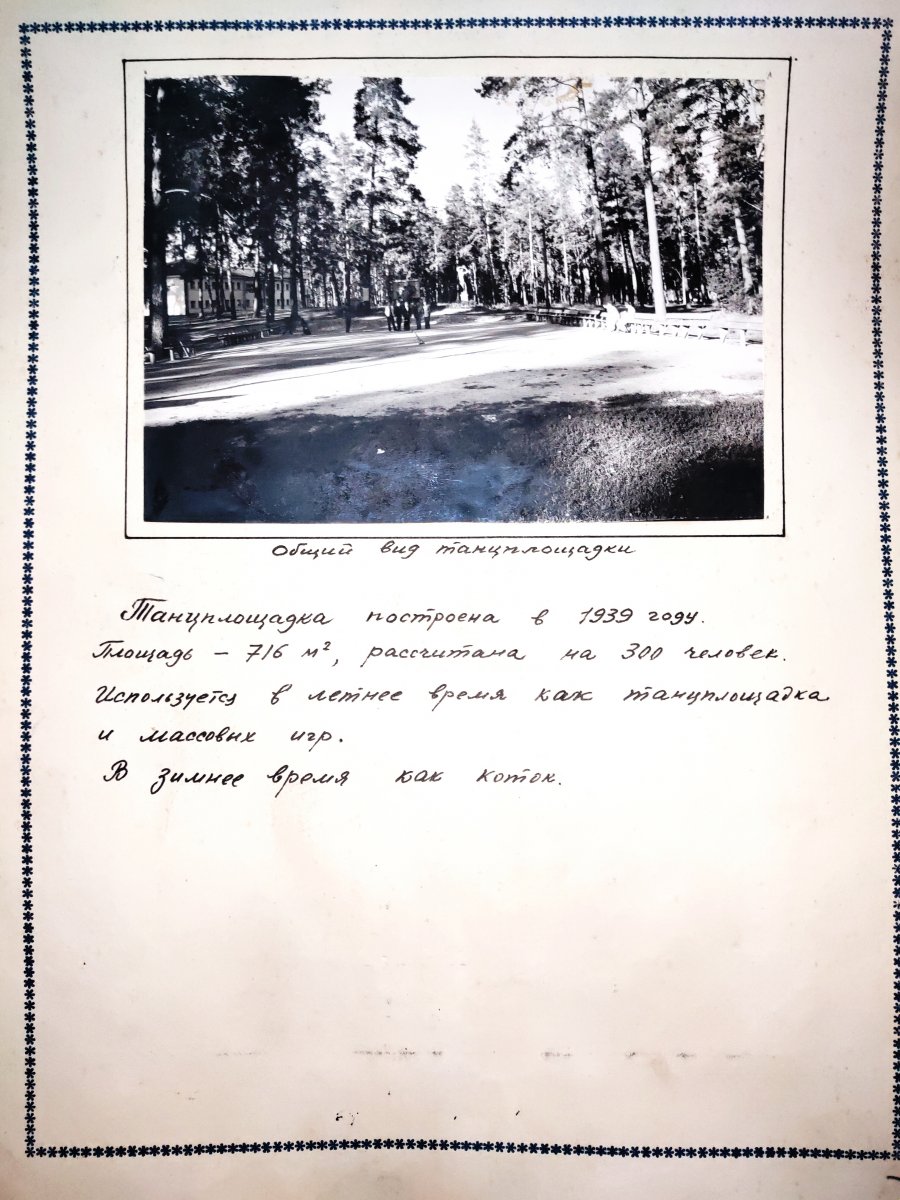 Общий вид танцплощадки
Танцплощадка построена в 1939 году.
Площадь – 716 м², рассчитана на 300 человек.
Используется в летнее время как танцплощадка
и массовых игр.
В зимнее время как каток.